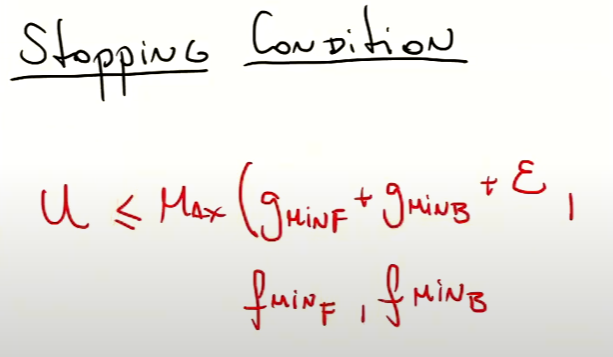 Stopping Condition
U ≤ Max (gMinF + gMinB + ε,
fMinF, fMinB